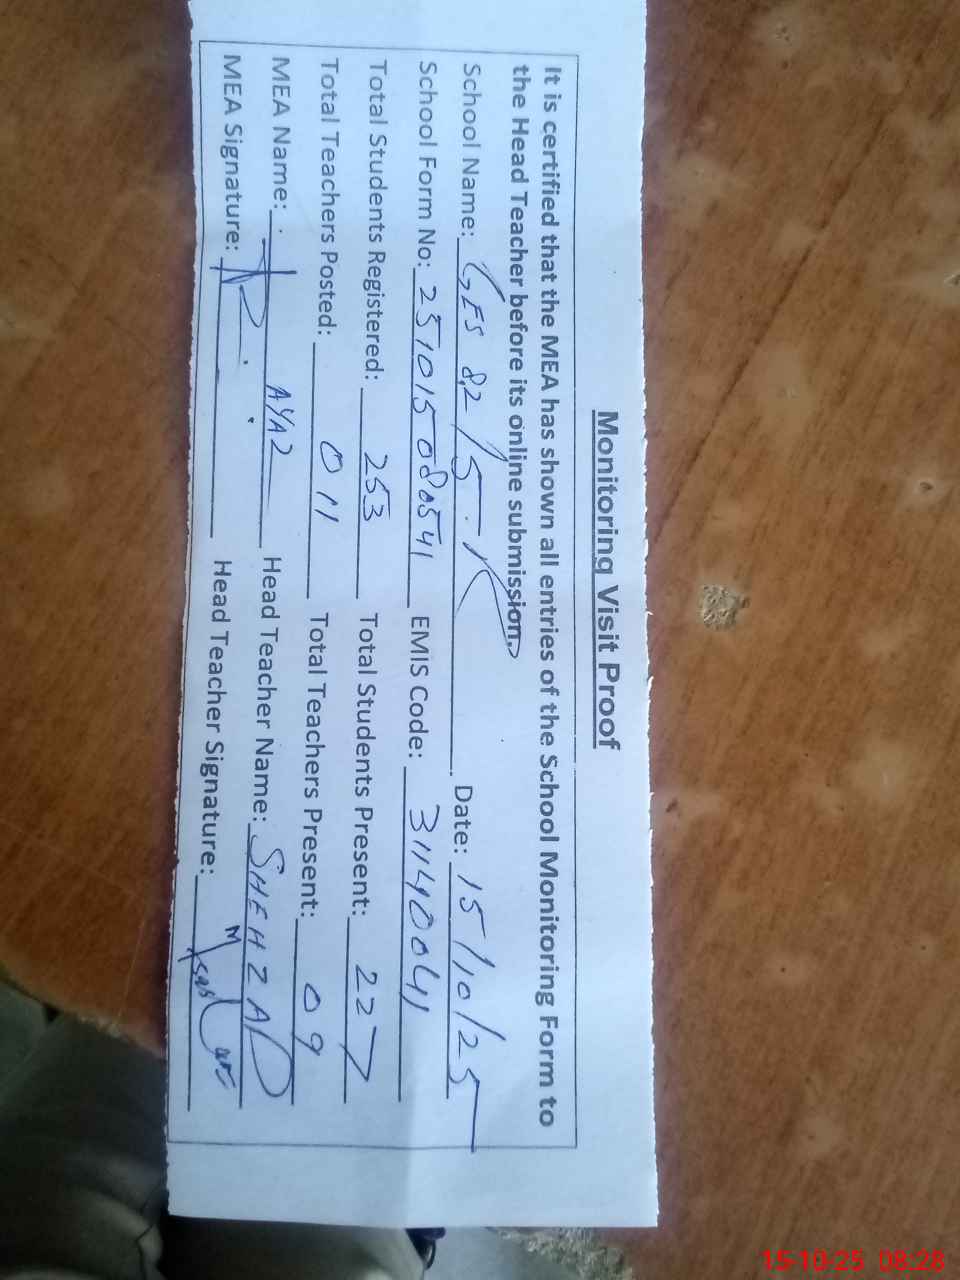 Monitoring Visit Proof
It is certified that the MEA has shown all entries of the School Monitoring Form to
the Head Teacher before its online submission.
School Name: GES 82/5-R Date: 15/10/25
School Form No: 251015080541 EMIS Code: 31140041
Total Students Registered: 253 Total Students Present: 227
Total Teachers Posted: 011 Total Teachers Present: 09
MEA Name: AYAZ Head Teacher Name: SHEHZAD
MEA Signature: Head Teacher Signature:
15-10-25 08:28